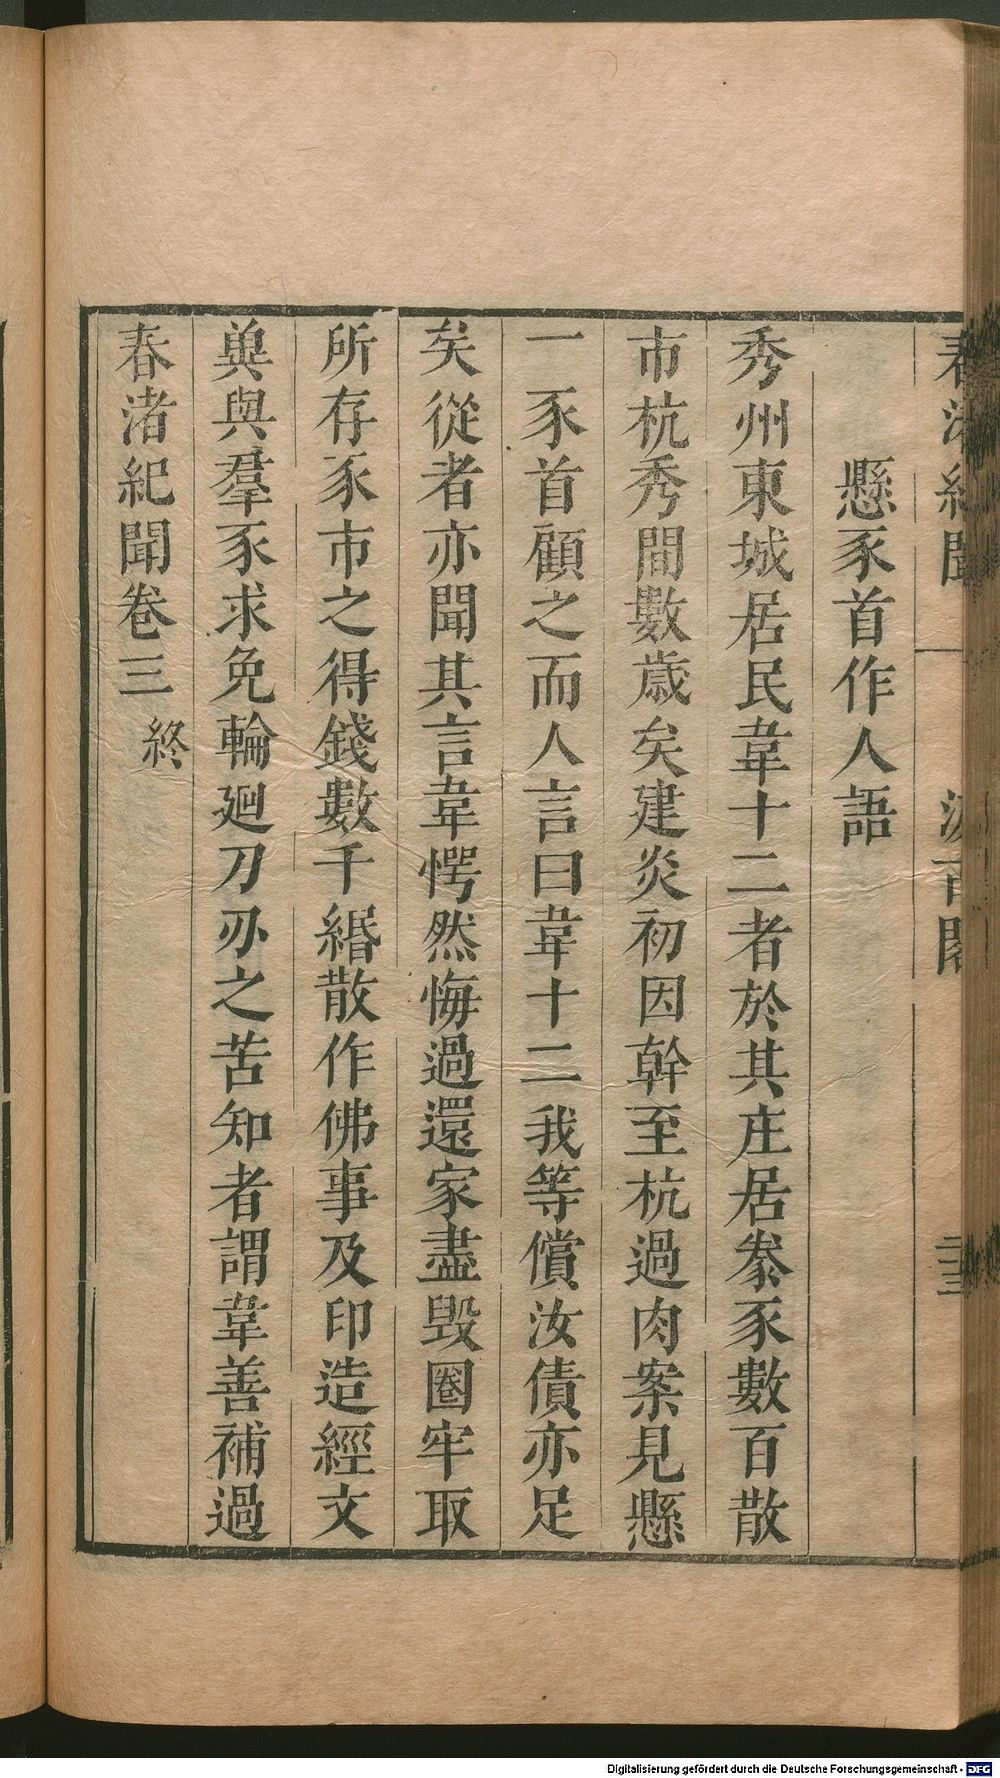 春渚紀聞 汲古閣
懸豕首作人語
秀州東城居民韋十二者於其庄居豢豕數百散
市杭秀間數歲矣建炎初因幹至杭過肉案見懸
一豕首顧之而人言曰韋十二我等償汝債亦足
矣從者亦聞其言韋愕然悔過還家盡毀圈牢取
所存豕市之得錢數千緡散作佛事及印造經文
兾與羣豕求免輪廻刀刃之苦知者謂韋善補過
春渚紀聞卷三 終
Digitalisierung gefördert durch die Deutsche Forschungsgemeinschaft - DFG